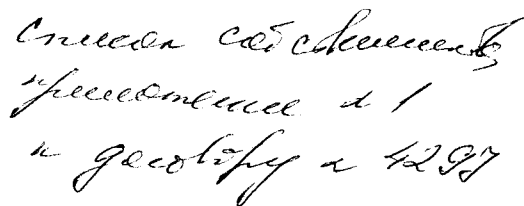 список собственников
приложение № 1
к договору № 4297